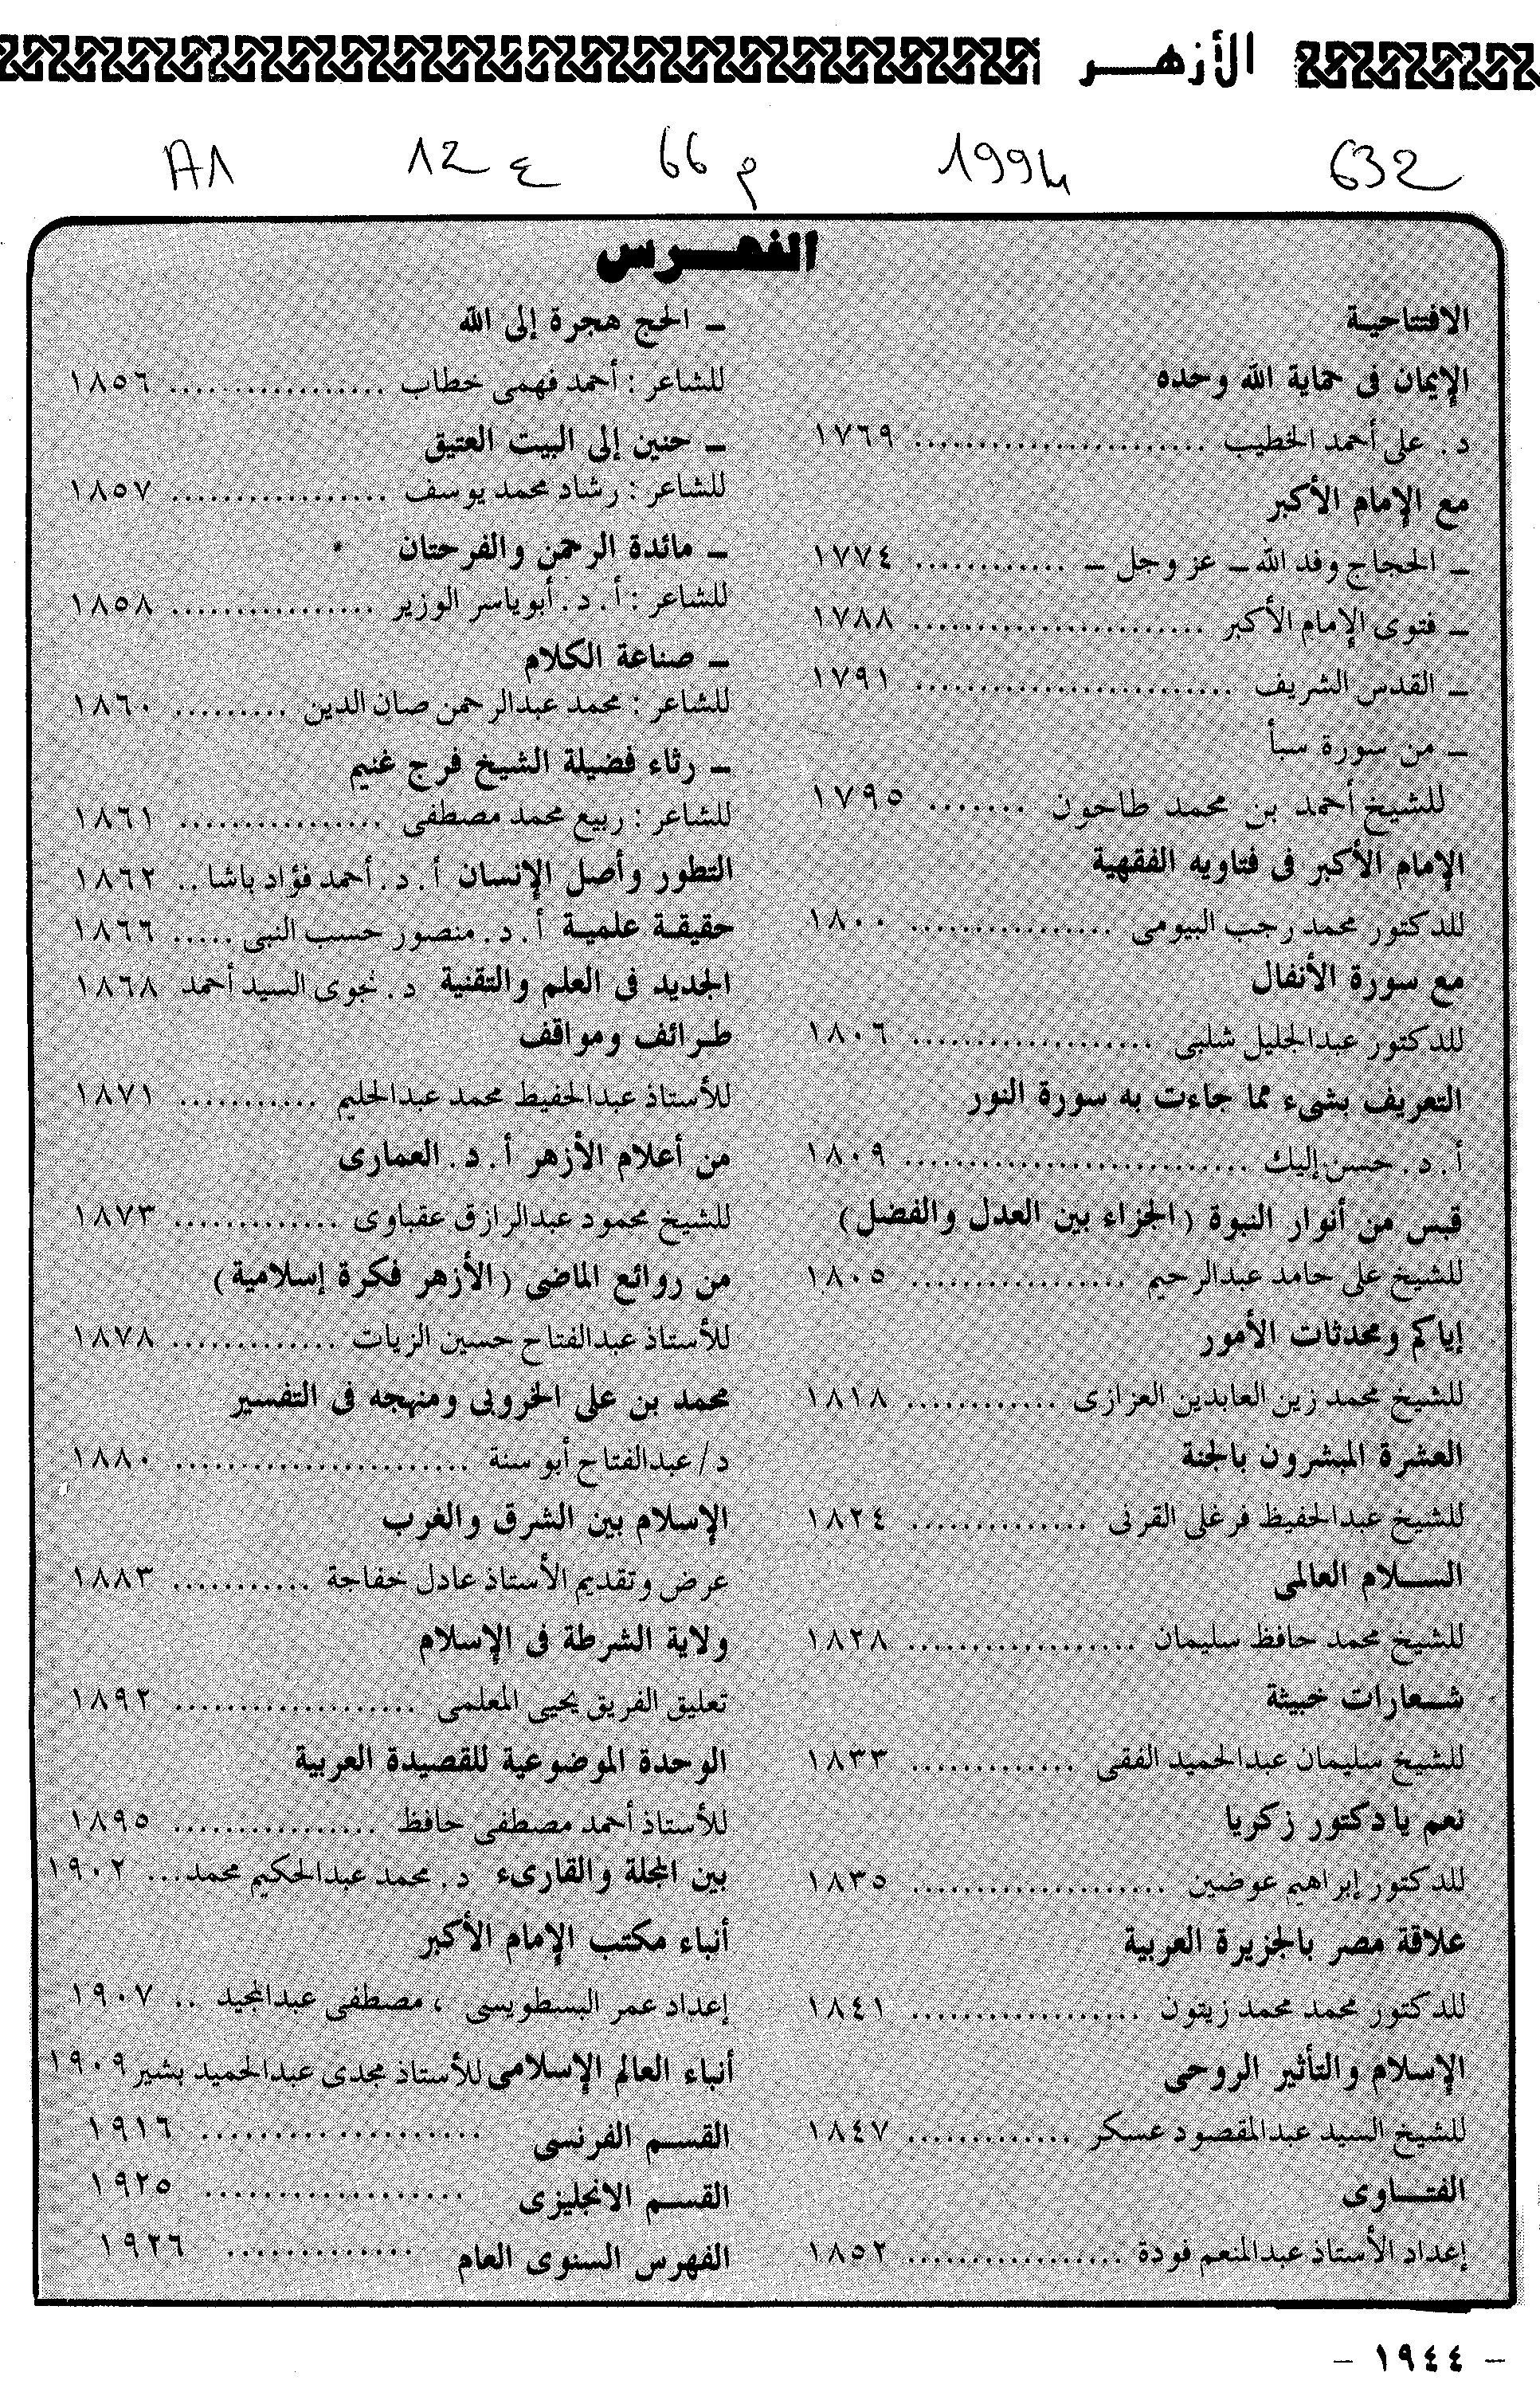 الأزهـــر
632
199
م 66
ع 12
A1
الفهـــرس
الافتتاحيـة
الإيمان فى حماية الله وحده
د . على أحمد الخطيب ....................... ١٧٦٩
مع الإمام الأكبر
ـ الحجاج وفد الله ـ عز وجل ـ ............ ١٧٧٤
ـ فتوى الإمام الأكبر ....................... ١٧٨٨
ـ القدس الشريف ......................... ١٧٩١
ـ من سورة سبأ
للشيخ أحمد بن محمد طاحون ....... ١٧٩٥
الإمام الأكبر فى فتاويه الفقهية
للدكتور محمد رجب البيومى ................ ١٨٠٠
مع سورة الأنفال
للدكتور عبدالجليل شلبى ................... ١٨٠٦
التعريف بشىء مما جاءت به سورة النور
أ . د . حسن إليك ........................... ١٨٠٩
قبس من أنوار النبوة (الجزاء بين العدل والفضل)
للشيخ على حامد عبدالرحيم ................. ١٨٠٥
إياكم ومحدثات الأمور
للشيخ محمد زين العابدين العزازى ............ ١٨١٨
العشرة المبشرون بالجنة
للشيخ عبدالحفيظ فرغلى القرنى .............. ١٨٢٤
الســلام العالمى
للشيخ محمد حافظ سليمان .................. ١٨٢٨
شـعارات خبيثة
للشيخ سليمان عبدالحميد الفقى ............. ١٨٣٣
نعم يا دكتور زكريا
للدكتور إبراهيم عوضين .................... ١٨٣٥
علاقة مصر بالجزيرة العربية
للدكتور محمد محمد زيتون .................. ١٨٤١
الإسلام والتأثير الروحى
للشيخ السيد عبدالمقصود عسكر ............. ١٨٤٧
الفتـــاوى
إعداد الأستاذ عبدالمنعم فودة ................. ١٨٥٢
ـ الحج هجرة إلى الله
للشاعر : أحمد فهمى خطاب ................. ١٨٥٦
ـ حنين إلى البيت العتيق
للشاعر : رشاد محمد يوسف ................. ١٨٥٧
ـ مائدة الرحمن والفرحتان
للشاعر : أ . د . أبوياسر الوزير ................ ١٨٥٨
ـ صناعة الكلام
للشاعر : محمد عبدالرحمن صان الدين ......... ١٨٦٠
ـ رثاء فضيلة الشيخ فرج غنيم
للشاعر : ربيع محمد مصطفى ................ ١٨٦١
التطور وأصل الإنسان أ . د . أحمد فؤاد باشا .. ١٨٦٢
حقيقـة علميـة أ . د . منصور حسب النبى ..... ١٨٦٦
الجديد فى العلم والتقنية د . نجوى السيد أحمد ١٨٦٨
طـرائف ومواقف
للأستاذ عبدالحفيظ محمد عبدالحليم ........... ١٨٧١
من أعلام الأزهر أ . د . العمارى
للشيخ محمود عبدالرازق عقباوى ............. ١٨٧٣
من روائع الماضى (الأزهر فكرة إسلامية)
للأستاذ عبدالفتاح حسين الزيات ............. ١٨٧٨
محمد بن على الخروبى ومنهجه فى التفسير
د/ عبدالفتاح أبو سنة ....................... ١٨٨٠
الإسلام بين الشرق والغرب
عرض وتقديم الأستاذ عادل خفاجة ........... ١٨٨٣
ولاية الشرطة فى الإسلام
تعليق الفريق يحيى المعلمى ................... ١٨٩٢
الوحدة الموضوعية للقصيدة العربية
للأستاذ أحمد مصطفى حافظ ................ ١٨٩٥
بين المجلة والقارىء د . محمد عبدالحكيم محمد... ١٩٠٢
أنباء مكتب الإمام الأكبر
إعداد عمر البسطويسى ، مصطفى عبدالمجيد .. ١٩٠٧
أنباء العالم الإسلامى للأستاذ مجدى عبدالحميد بشير ١٩٠٩
القسـم الفرنسى ..................... ١٩١٦
القسـم الانجليزى .................... ١٩٢٥
الفهرس السنوى العام .............. ١٩٢٦
- ١٩٤٤ -